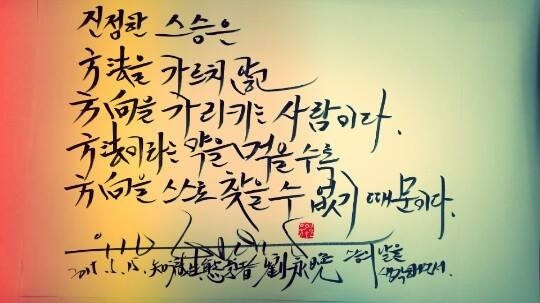 진정한 스승은
方法을 가르치 않고
方向을 가리키는 사람이다.
方法이라는 약을 먹을수록
方向을 스스로 찾을 수 없기 때문이다.
劉永晩 스승의 날을
생각하면서.